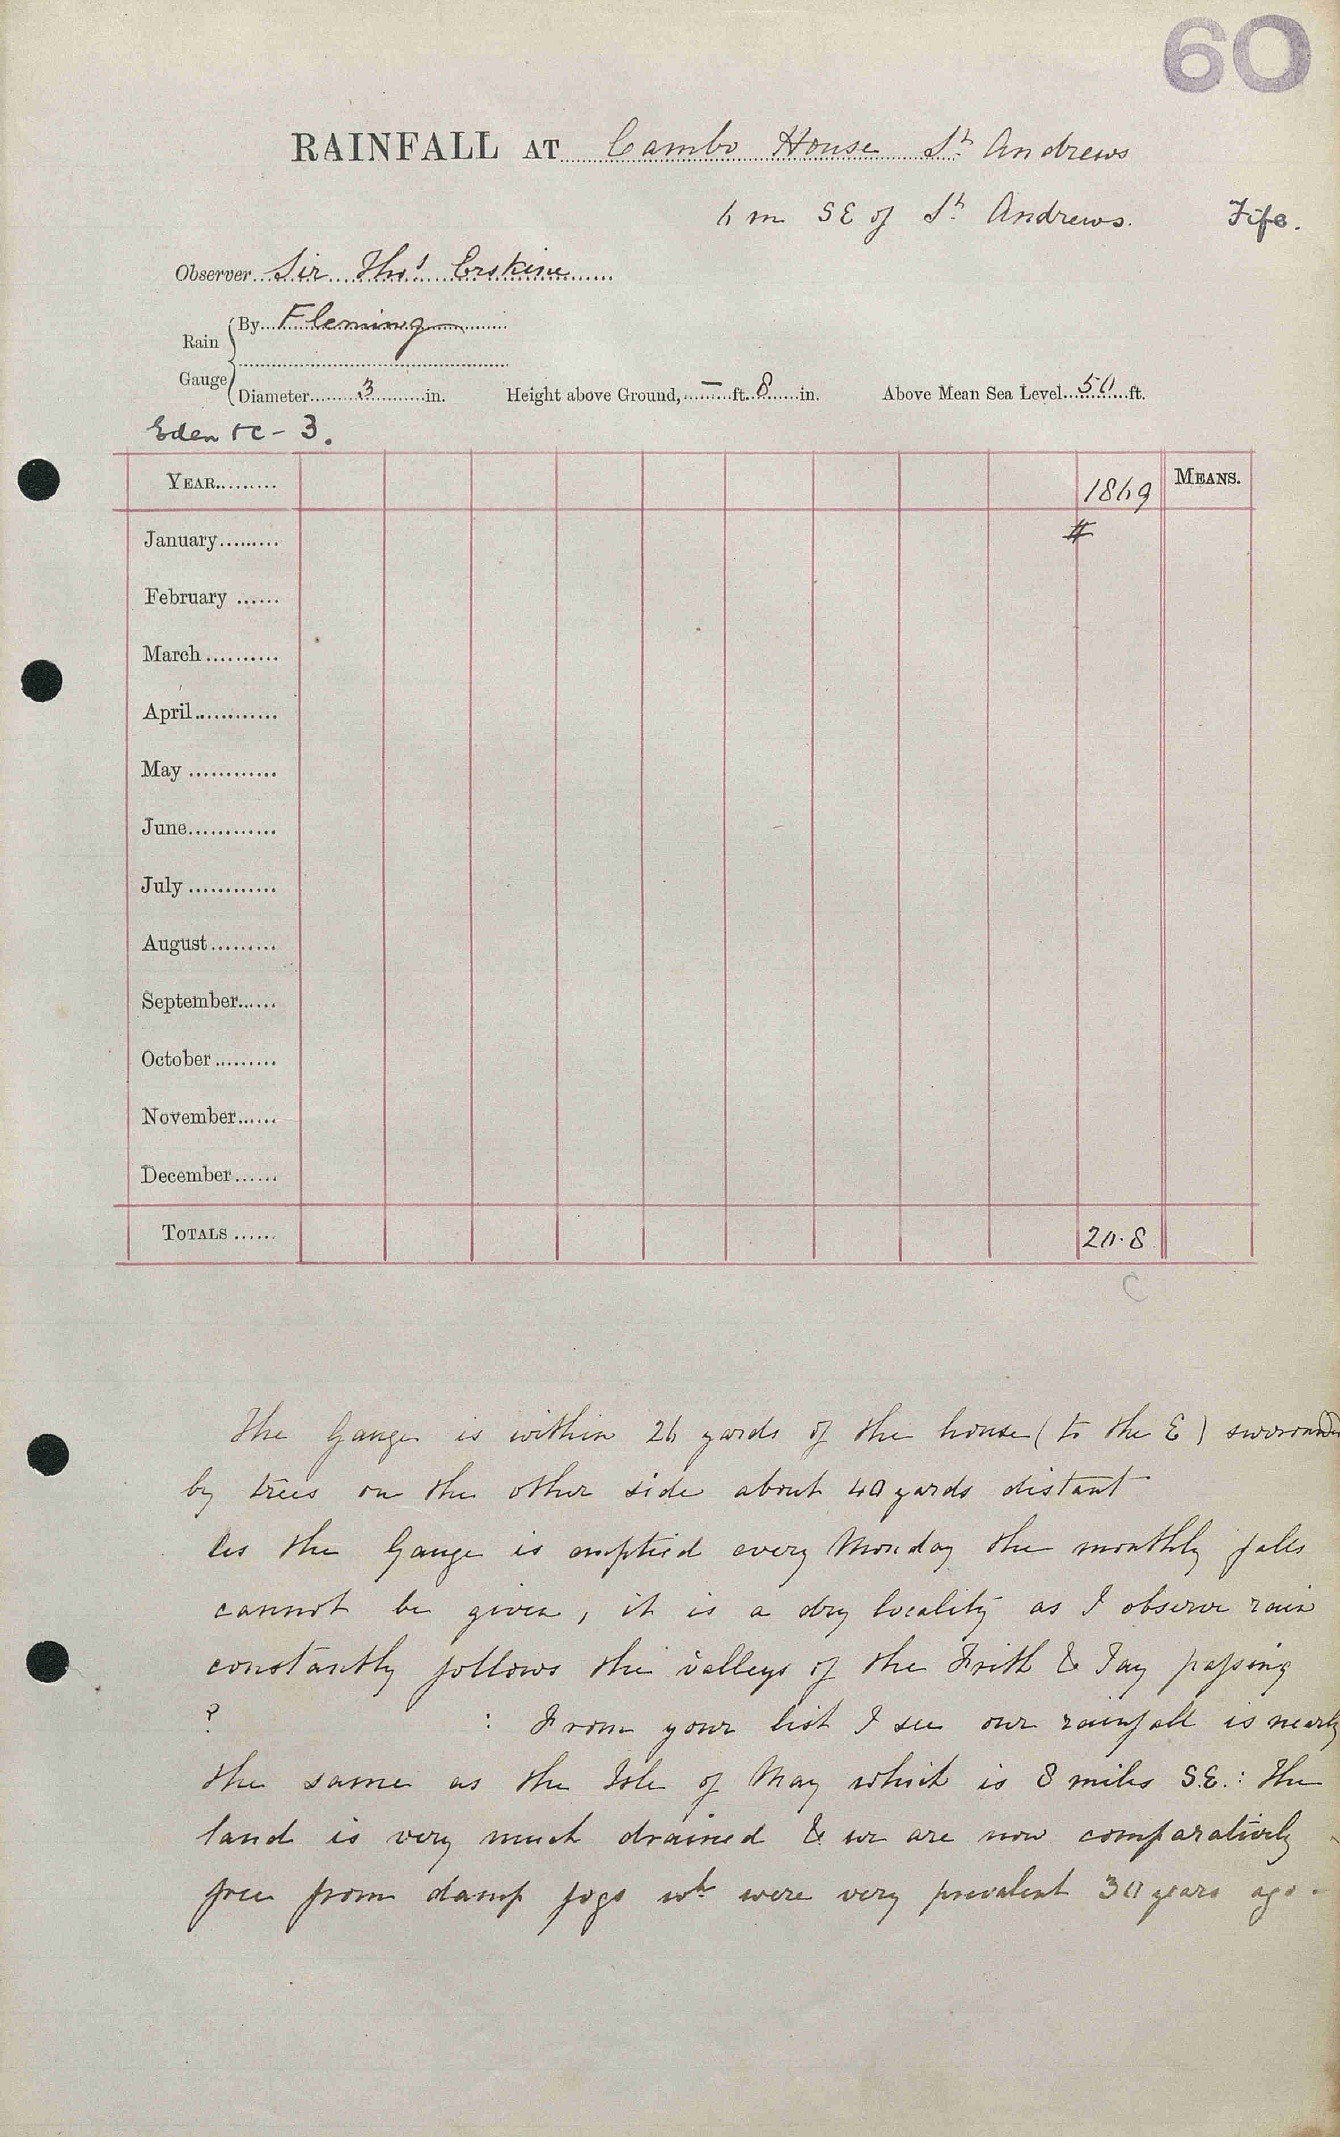 60
RAINFALL AT Cambo House St Andrews
6 m SE of St Andrews. Fife.
Observer Sir Thos Erskine
Rain Gauge { By Fleming
Diameter 3 in. Height above Ground, – ft. 8 in. Above Mean Sea Level 50 ft.
Eden &c – 3.
YEAR 1869 MEANS.
January #
February
March
April
May
June
July
August
September
October
November
December
TOTALS 20.8
C
The Gauge is within 26 yards of the house (to the E) surrounded
by trees on the other side about 40 yards distant
As the Gauge is emptied every Monday the monthly falls
cannot be given, it is a dry locality as I observe rain
constantly follows the valleys of the Frith & Tay passing
? : From your list I see our rainfall is nearly
the same as the Isle of May which is 8 miles S.E.: The
land is very much drained & we are now comparatively
free from damp fogs wh were very prevalent 30 years ago.